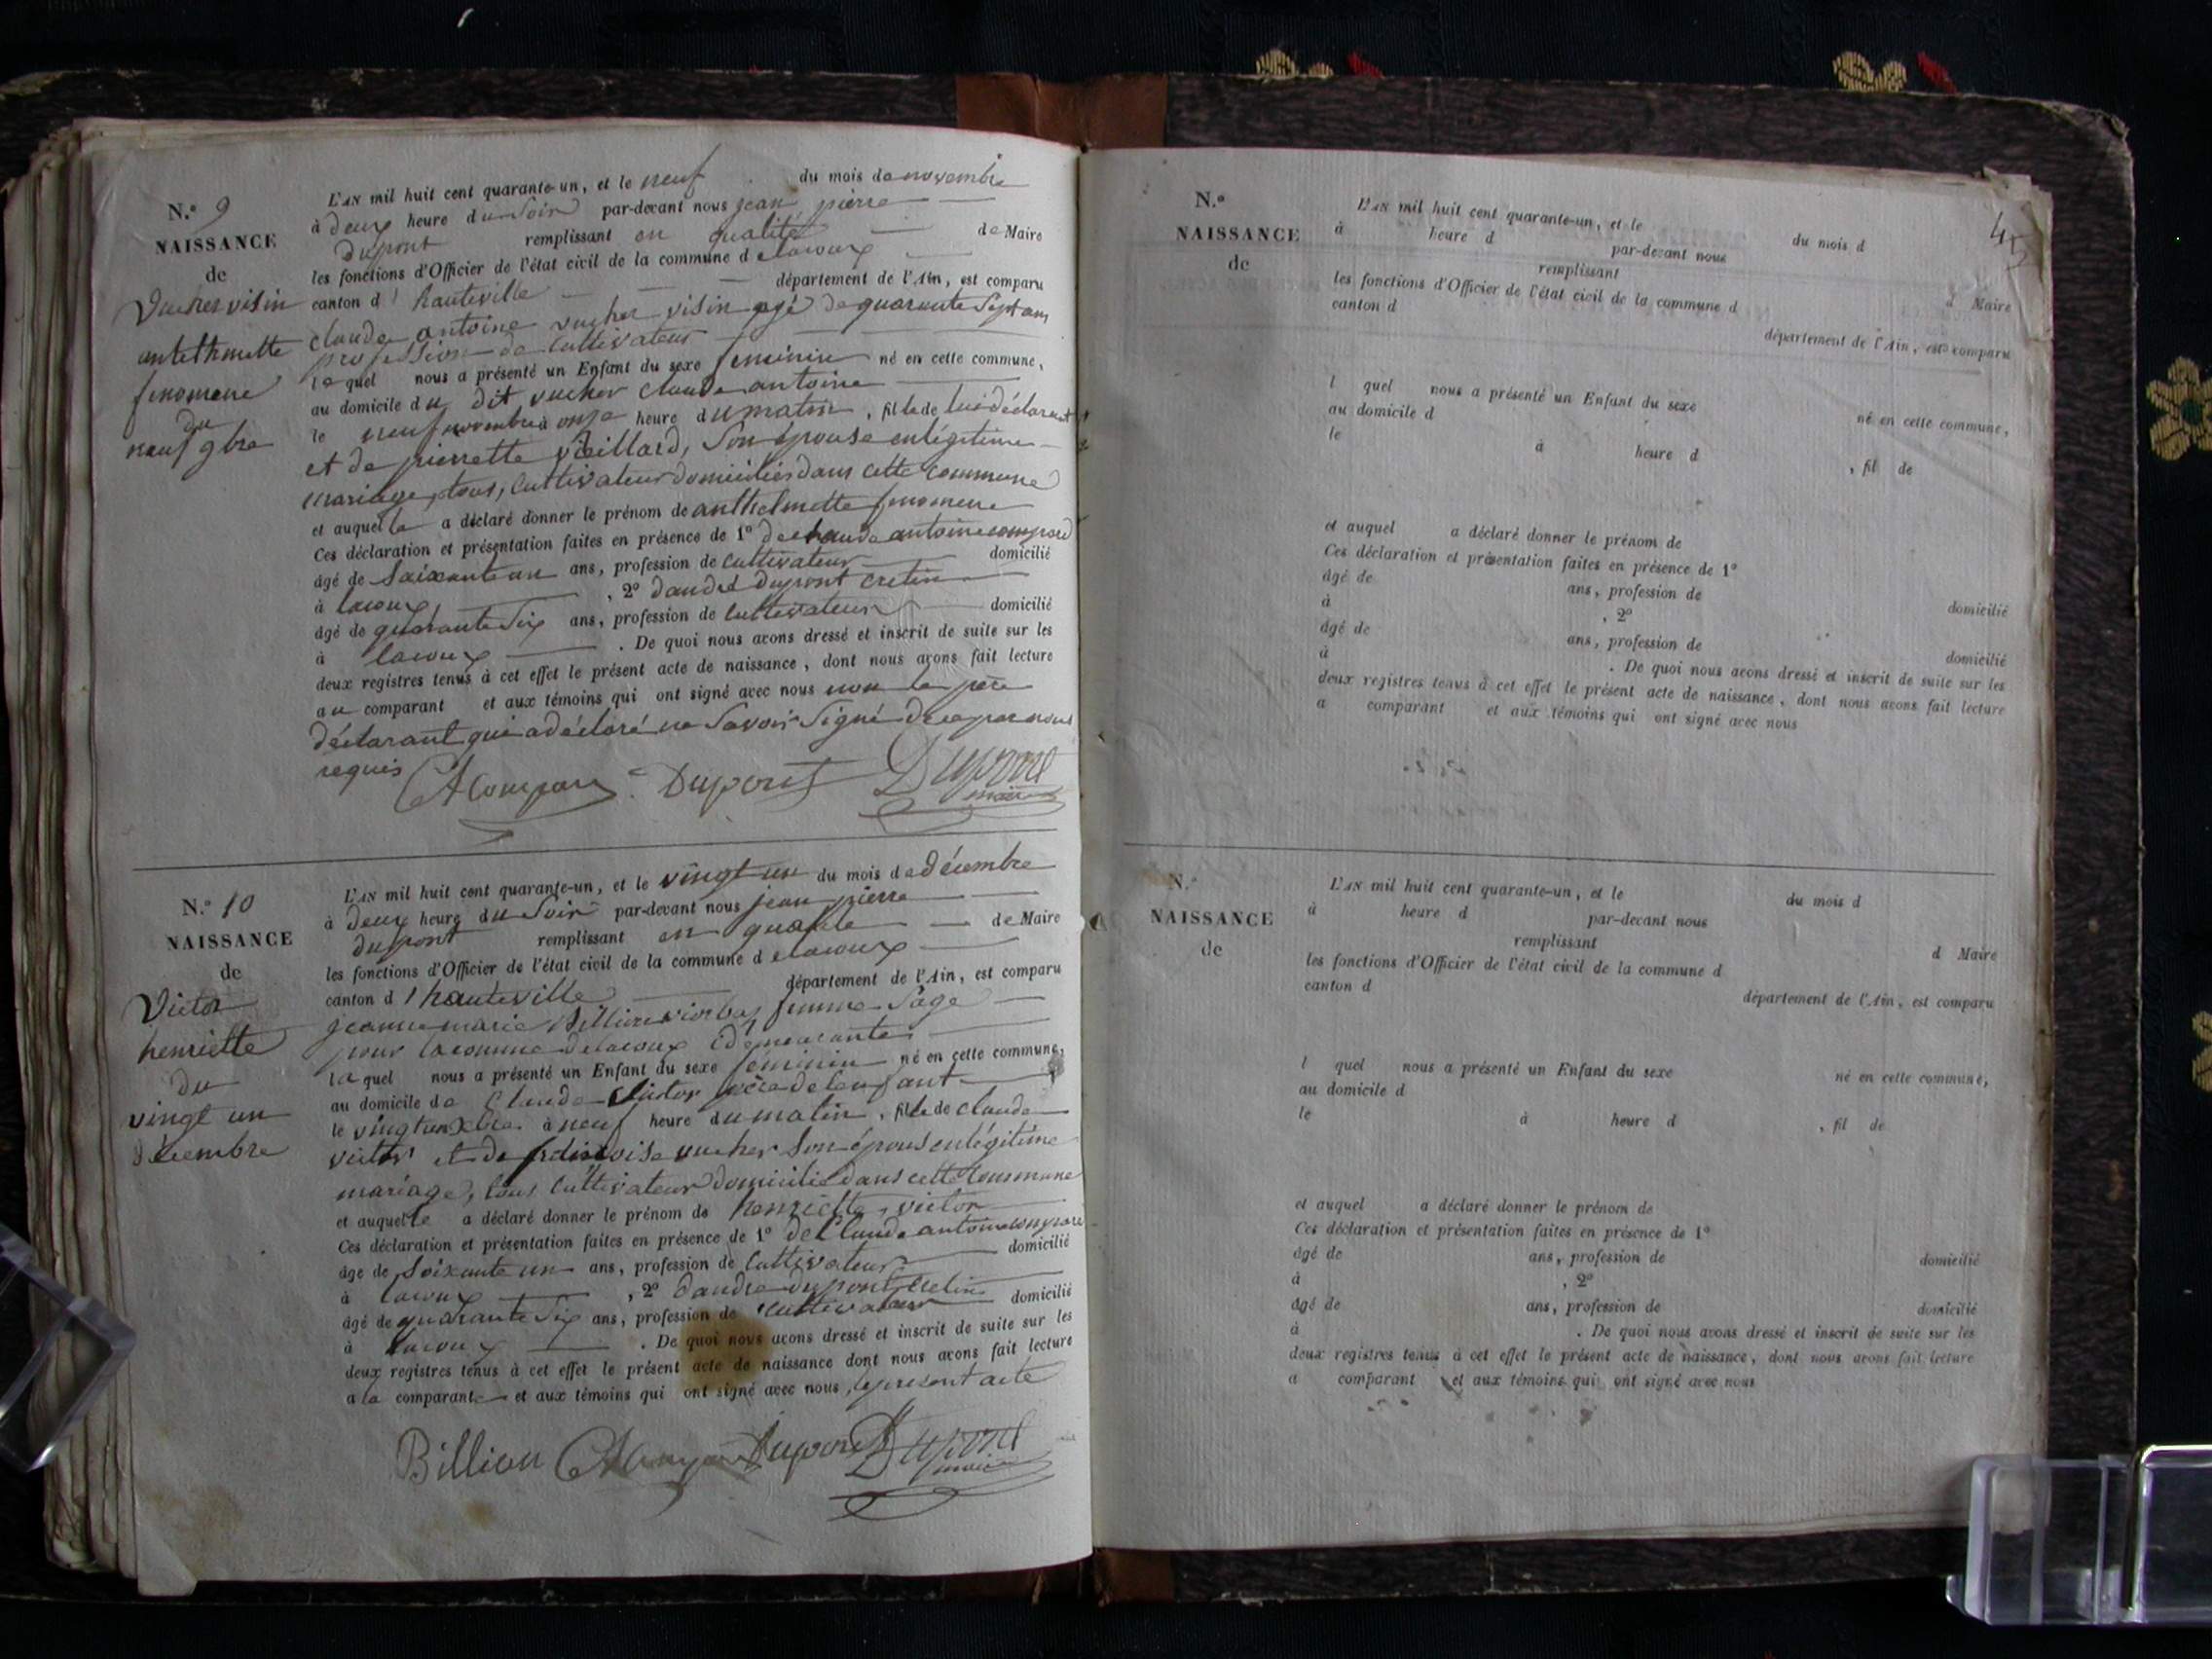 N.º 9
NAISSANCE
de
Vucher visin
antelhmette
finomene
du
neuf 9bre
L'AN mil huit cent quarante-un, et le neuf du mois de novembre
à deux heure du soir par-devant nous jean pierre
dupont remplissant en qualité de Maire
les fonctions d'Officier de l'état civil de la commune de lacoux
canton d'hauteville département de l'Ain, est comparu
claude antoine vucher visin agé de quarante sept ans
profession de cultivateur
lequel nous a présenté un Enfant du sexe feminin né en cette commune,
au domicile du dit vucher claude antoine
le neuf novembre à onze heure du matin, fille de lui déclarant
et de pierrette veillard, son épouse en légitime
mariage, tous, cultivateur domiciliés dans cette commune
et auquelle a déclaré donner le prénom de anthelmette finomene
Ces déclaration et présentation faites en présence de 1º de claude antoine compard
âgé de soixante un ans, profession de cultivateur domicilié
à lacoux, 2º d'andré dupont cretin
âgé de quarante six ans, profession de cultivateur domicilié
à lacoux. De quoi nous avons dressé et inscrit de suite sur les
deux registres tenus à cet effet le présent acte de naissance, dont nous avons fait lecture
au comparant et aux témoins qui ont signé avec nous non le père
déclarant qui a déclaré ne savoir signé de ce par nous
requis
Dupont Dupont
maire
N.º 10
NAISSANCE
de
Victor
henriette
du
vingt un
décembre
L'AN mil huit cent quarante-un, et le vingt un du mois de décembre
à deux heure du soir par-devant nous jean pierre
dupont remplissant en qualité de Maire
les fonctions d'Officier de l'état civil de la commune de lacoux
canton d'hauteville département de l'Ain, est comparu
jeanne marie Billion femme sage
pour la comune de lacoux
laquel nous a présenté un Enfant du sexe féminin né en cette commune,
au domicile de Claude Victor père de lenfant
le vingt un Xbre à neuf heure du matin, fille de claude
victor et de vucher son épouse en légitime
mariage, tous cultivateur domicilié dans cette commune
et auquelle a déclaré donner le prénom de henriette, victor
Ces déclaration et présentation faites en présence de 1º de Claude antoine compard
âgé de soixante un ans, profession de cultivateur domicilié
à lacoux, 2º d'andré dupont cretin
âgé de quarante six ans, profession de cultivateur domicilié
à lacoux. De quoi nous avons dressé et inscrit de suite sur les
deux registres tenus à cet effet le présent acte de naissance dont nous avons fait lecture
a la comparante et aux témoins qui ont signé avec nous, le présent acte
Billion Dupont Dupont
maire
45
N.º
NAISSANCE
de
L'AN mil huit cent quarante-un, et le du mois d
à heure d par-devant nous
remplissant d Maire
les fonctions d'Officier de l'état civil de la commune d
canton d département de l'Ain, est comparu
l quel nous a présenté un Enfant du sexe né en cette commune,
au domicile d
le à heure d , fil de
et auquel a déclaré donner le prénom de
Ces déclaration et présentation faites en présence de 1º
âgé de ans, profession de domicilié
à , 2º
âgé de ans, profession de domicilié
à . De quoi nous avons dressé et inscrit de suite sur les
deux registres tenus à cet effet le présent acte de naissance, dont nous avons fait lecture
a comparant et aux témoins qui ont signé avec nous
N.º
NAISSANCE
de
L'AN mil huit cent quarante-un, et le du mois d
à heure d par-devant nous
remplissant d Maire
les fonctions d'Officier de l'état civil de la commune d
canton d département de l'Ain, est comparu
l quel nous a présenté un Enfant du sexe né en cette commune,
au domicile d
le à heure d , fil de
et auquel a déclaré donner le prénom de
Ces déclaration et présentation faites en présence de 1º
âgé de ans, profession de domicilié
à , 2º
âgé de ans, profession de domicilié
à . De quoi nous avons dressé et inscrit de suite sur les
deux registres tenus à cet effet le présent acte de naissance, dont nous avons fait lecture
a comparant et aux témoins qui ont signé avec nous